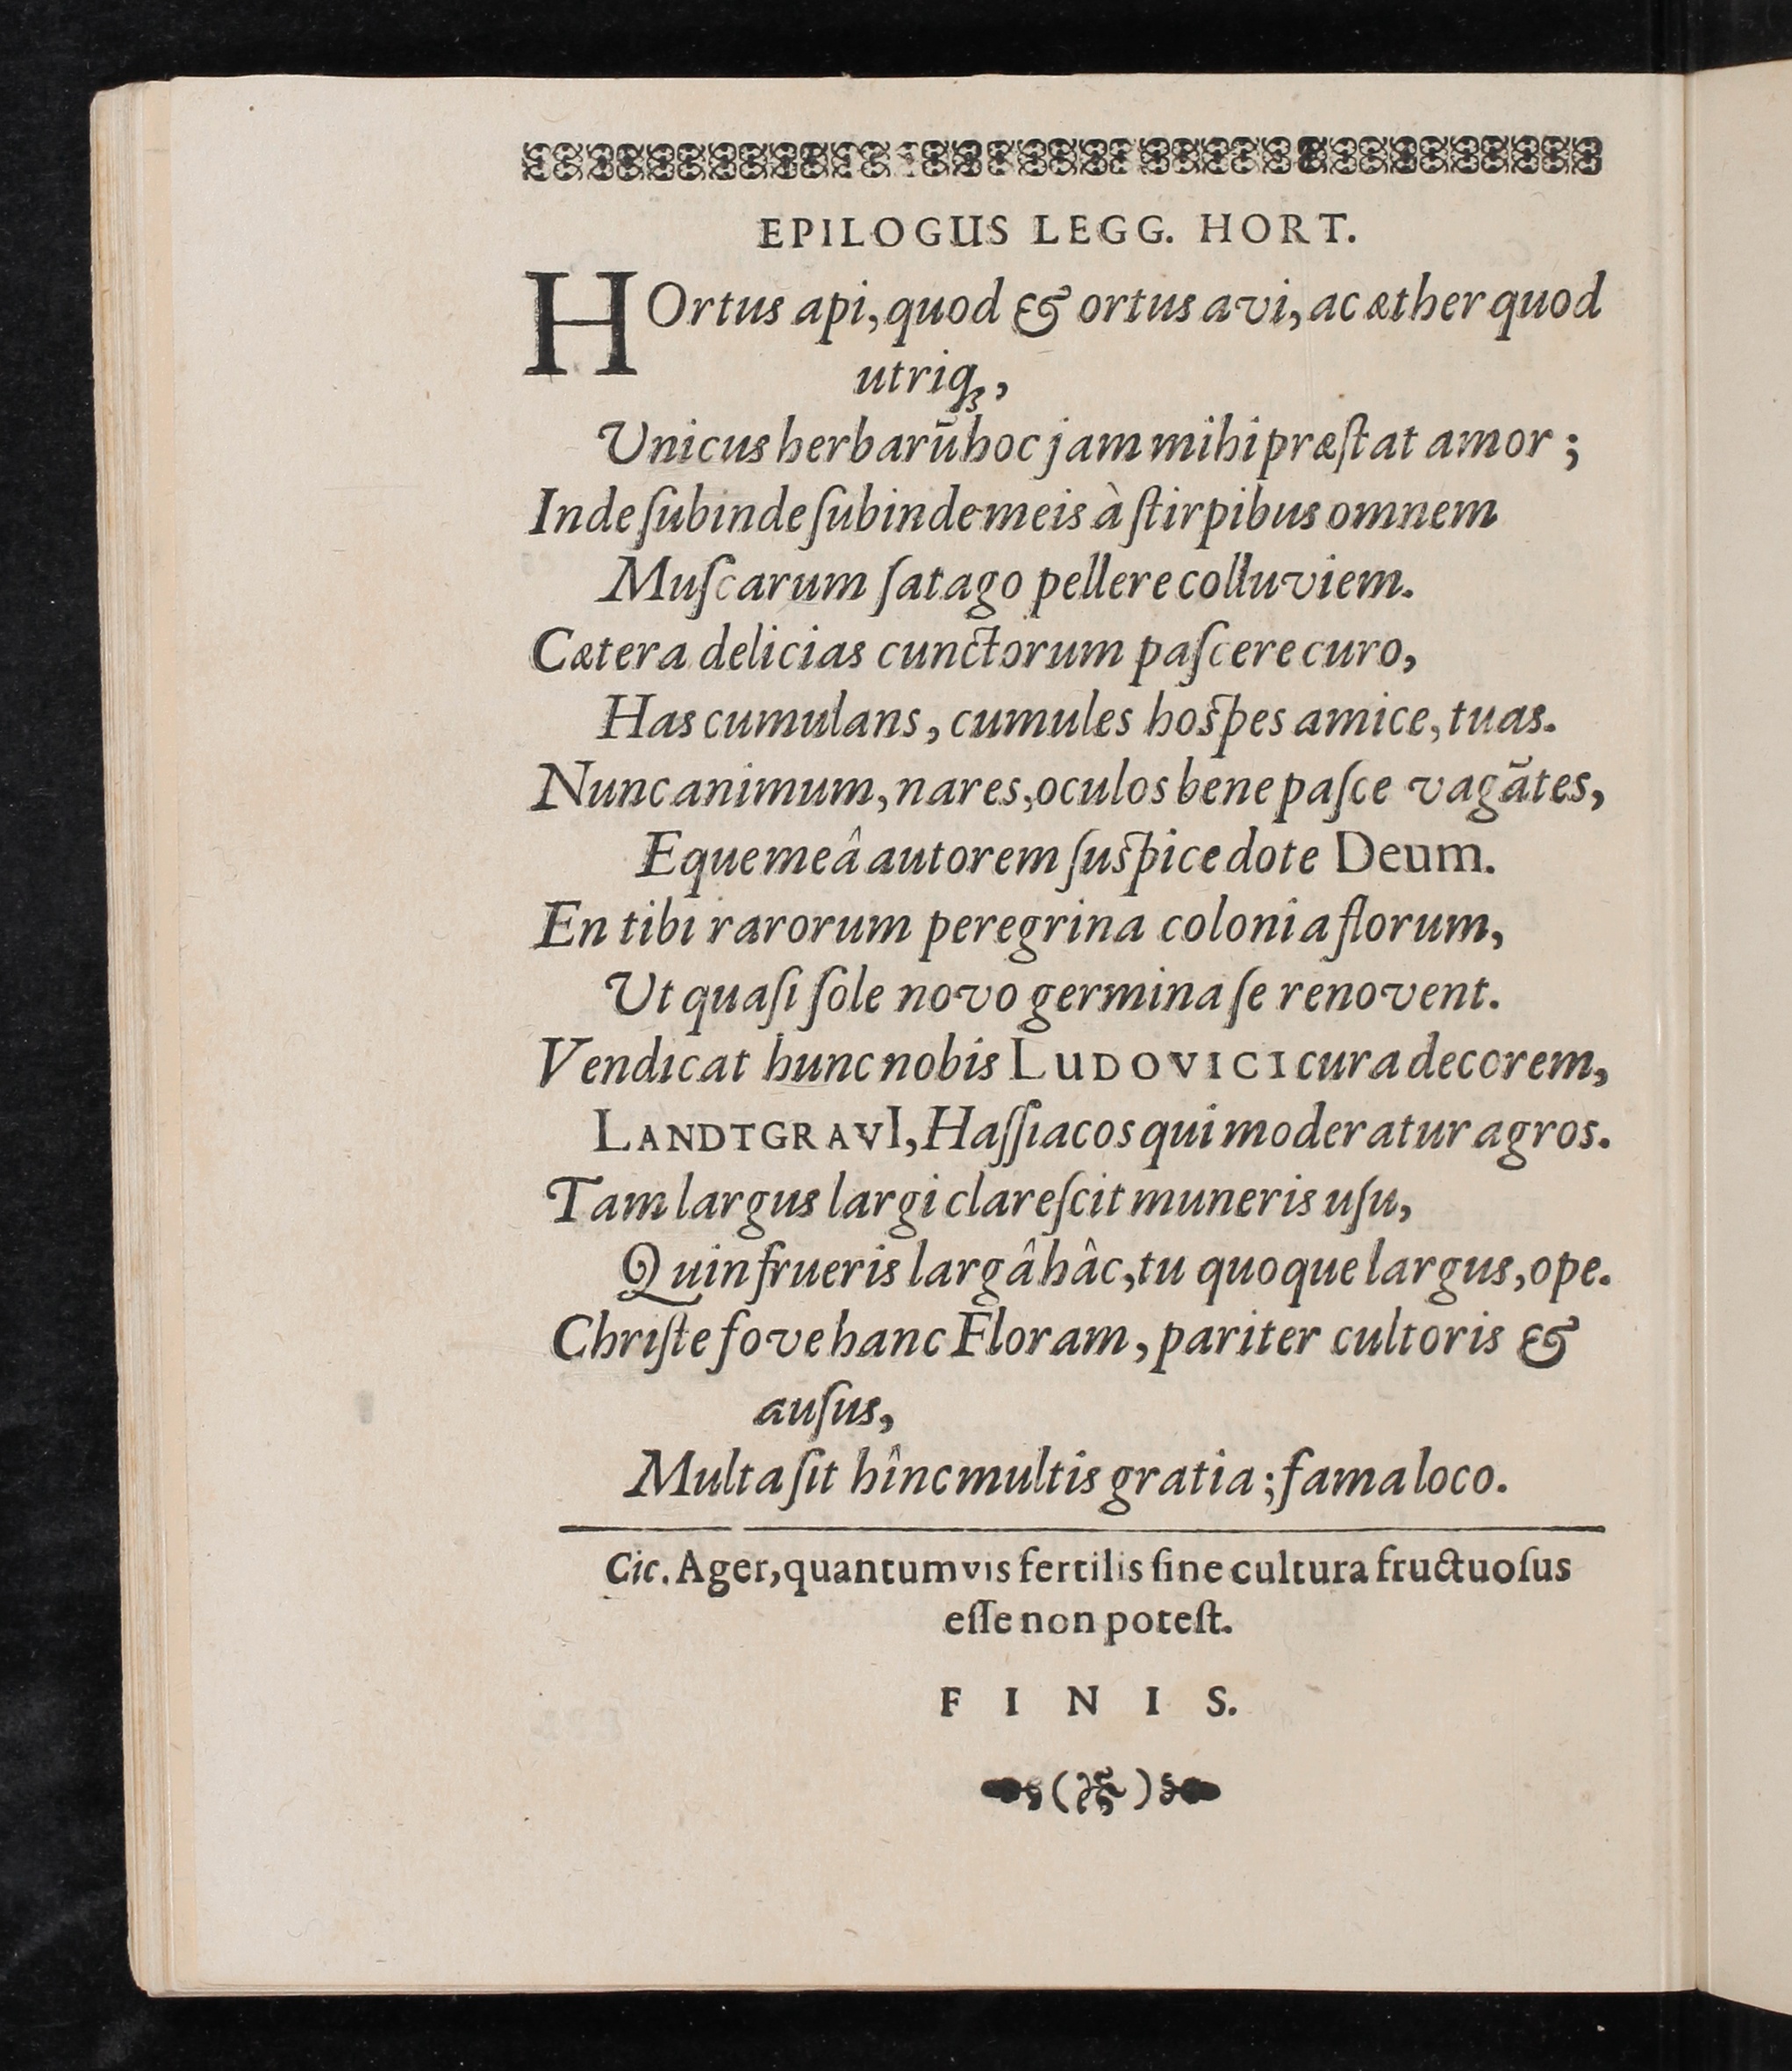 EPILOGUS LEGG. HORT.
HOrtus api, quod & ortus avi, ac æther quod
utriqꝫ,
Unicus herbarū hoc jam mihi præſtat amor;
Inde ſubinde ſubinde meis à ſtirpibus omnem
Muſcarum ſatago pellere colluviem.
Cætera delicias cunctorum paſcere curo,
Has cumulans, cumules hoſpes amice, tuas.
Nunc animum, nares, oculos bene paſce vagātes,
Eque meâ autorem ſuſpice dote Deum.
En tibi rarorum peregrina colonia florum,
Ut quaſi ſole novo germina ſe renovent.
Vendicat hunc nobis LUDOVICI cura decorem,
LANDTGRAVI, Haſſiacos qui moderatur agros.
Tam largus largi clareſcit muneris uſu,
Quin frueris largâ hâc, tu quoque largus, ope.
Chriſte fove hanc Floram, pariter cultoris &
auſus,
Multa ſit hînc multis gratia; fama loco.
Cic. Ager, quantumvis fertilis ſine cultura fructuoſus
eſſe non poteſt.
F I N I S.